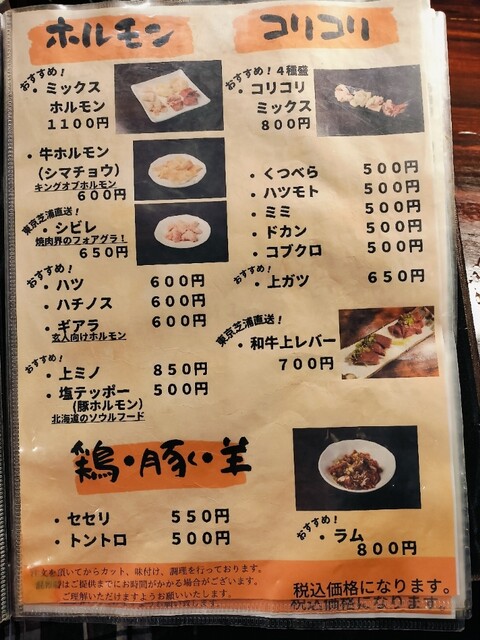 ホルモン
おすすめ！
・ミックス
ホルモン
1100円
・牛ホルモン
(シマチョウ)
キングオブホルモン
600円
東京芝浦直送！
・シビレ
焼肉界のフォアグラ！
650円
おすすめ！
・ハツ 600円
・ハチノス 600円
・ギアラ 600円
玄人向けホルモン
おすすめ！
・上ミノ 850円
・塩テッポー 500円
(豚ホルモン)
北海道のソウルフード
コリコリ
おすすめ！4種盛
・コリコリ
ミックス
800円
・くつべら 500円
・ハツモト 500円
・ミミ 500円
・ドカン 500円
・コブクロ 500円
おすすめ！
・上ガツ 650円
東京芝浦直送！
・和牛上レバー
700円
鶏・豚・羊
・セセリ 550円
・トントロ 500円
おすすめ！
・ラム
800円
文を頂いてからカット、味付け、調理を行っております。
はご提供までにお時間がかかる場合がございます。
ご理解いただけますようお願いいたします。
税込価格になります。
税込価格になります。